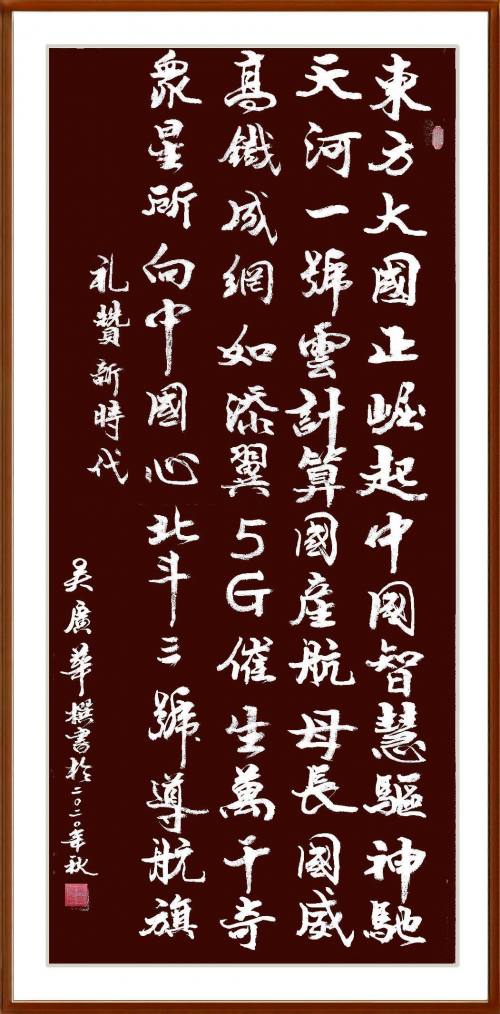 東方大國正崛起中國智慧驅神馳
天河一號雲計算國產航母長國威
高鐵成網如添翼5G催生萬千奇
眾星所向中國心北斗三號導航旗
礼贊新時代
吴廣華撰書於二〇二〇年秋